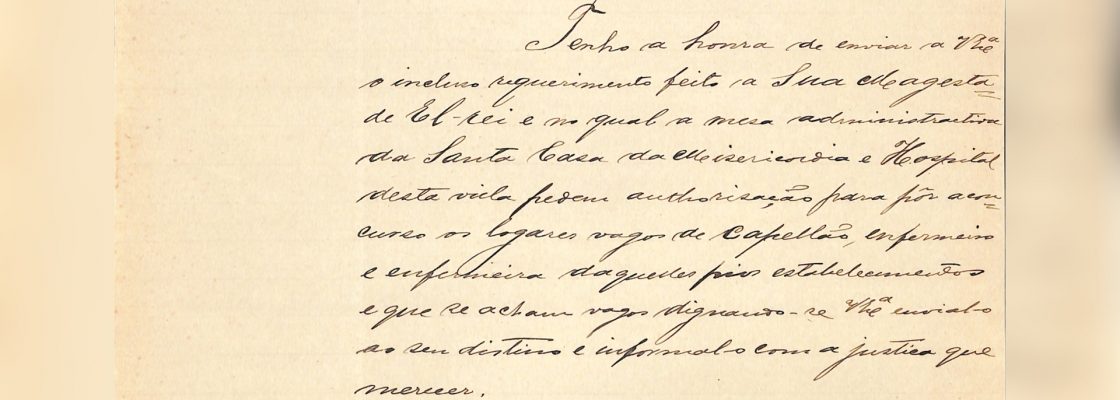 Tenho a honra de enviar a V Exª
o incluso requerimento feito a Sua Magesta=
de El-rei e no qual a mesa administractiva
da Santa Casa da Misericordia e Hospital
desta villa pedem authorisação para pôr a con=
curso os logares vagos de Capellão, enfermeiro
e enfermeira daquelles pios estabelecimentos
e que se acham vagos dignando-se V Exª envial-o
ao seu distino e informal-o com a justica que
merecer.